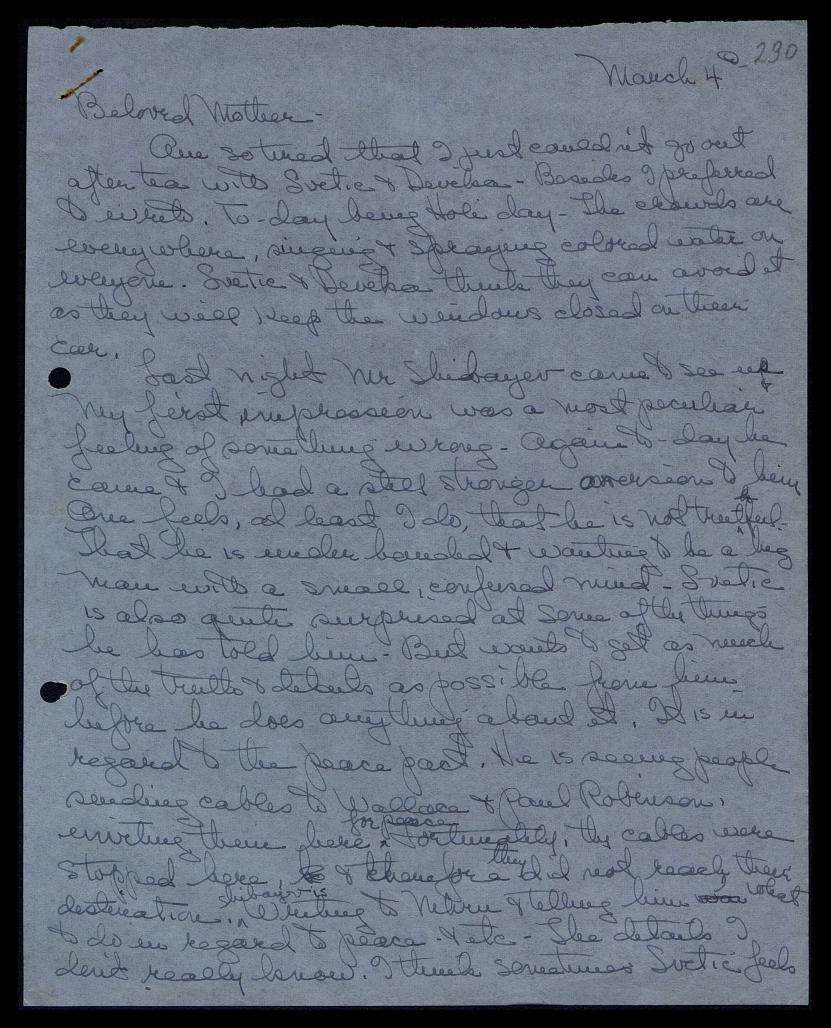 290
March 4th
Beloved Mother -
Am so tired that I just could n't go out
after tea with Svetic & Devika - Besides I preferred
to write. To-day being Holi day - The crowds are
everywhere, singing & spraying colored water on
everyone. Svetic & Devika think they can avoid it
as they will keep the windows closed on their
car.
Last night Mr Shibayev came to see us &
My first impression was a most peculiar
feeling of something wrong - Again to-day he
came & I had a still stronger aversion to him
One feels, at least I do, that he is not truthful -
That he is under handed & wanting to be a big
man with a small, confused mind - Svetic
is also quite surprised at some of the things
he has told him - But wants to get as much
of the truth & details as possible from him
before he does anything about it. It is in
regard to the peace pact. He is seeing people
sending cables to Wallace & Paul Robinson,
inviting them here for peace Fortunately, the cables were
stopped here, & therefore they did not reach their
destination. Shibayev is Writing to Nehru & telling him what
to do in regard to peace - & etc - The details I
don't really know. I think sometimes Svetic feels